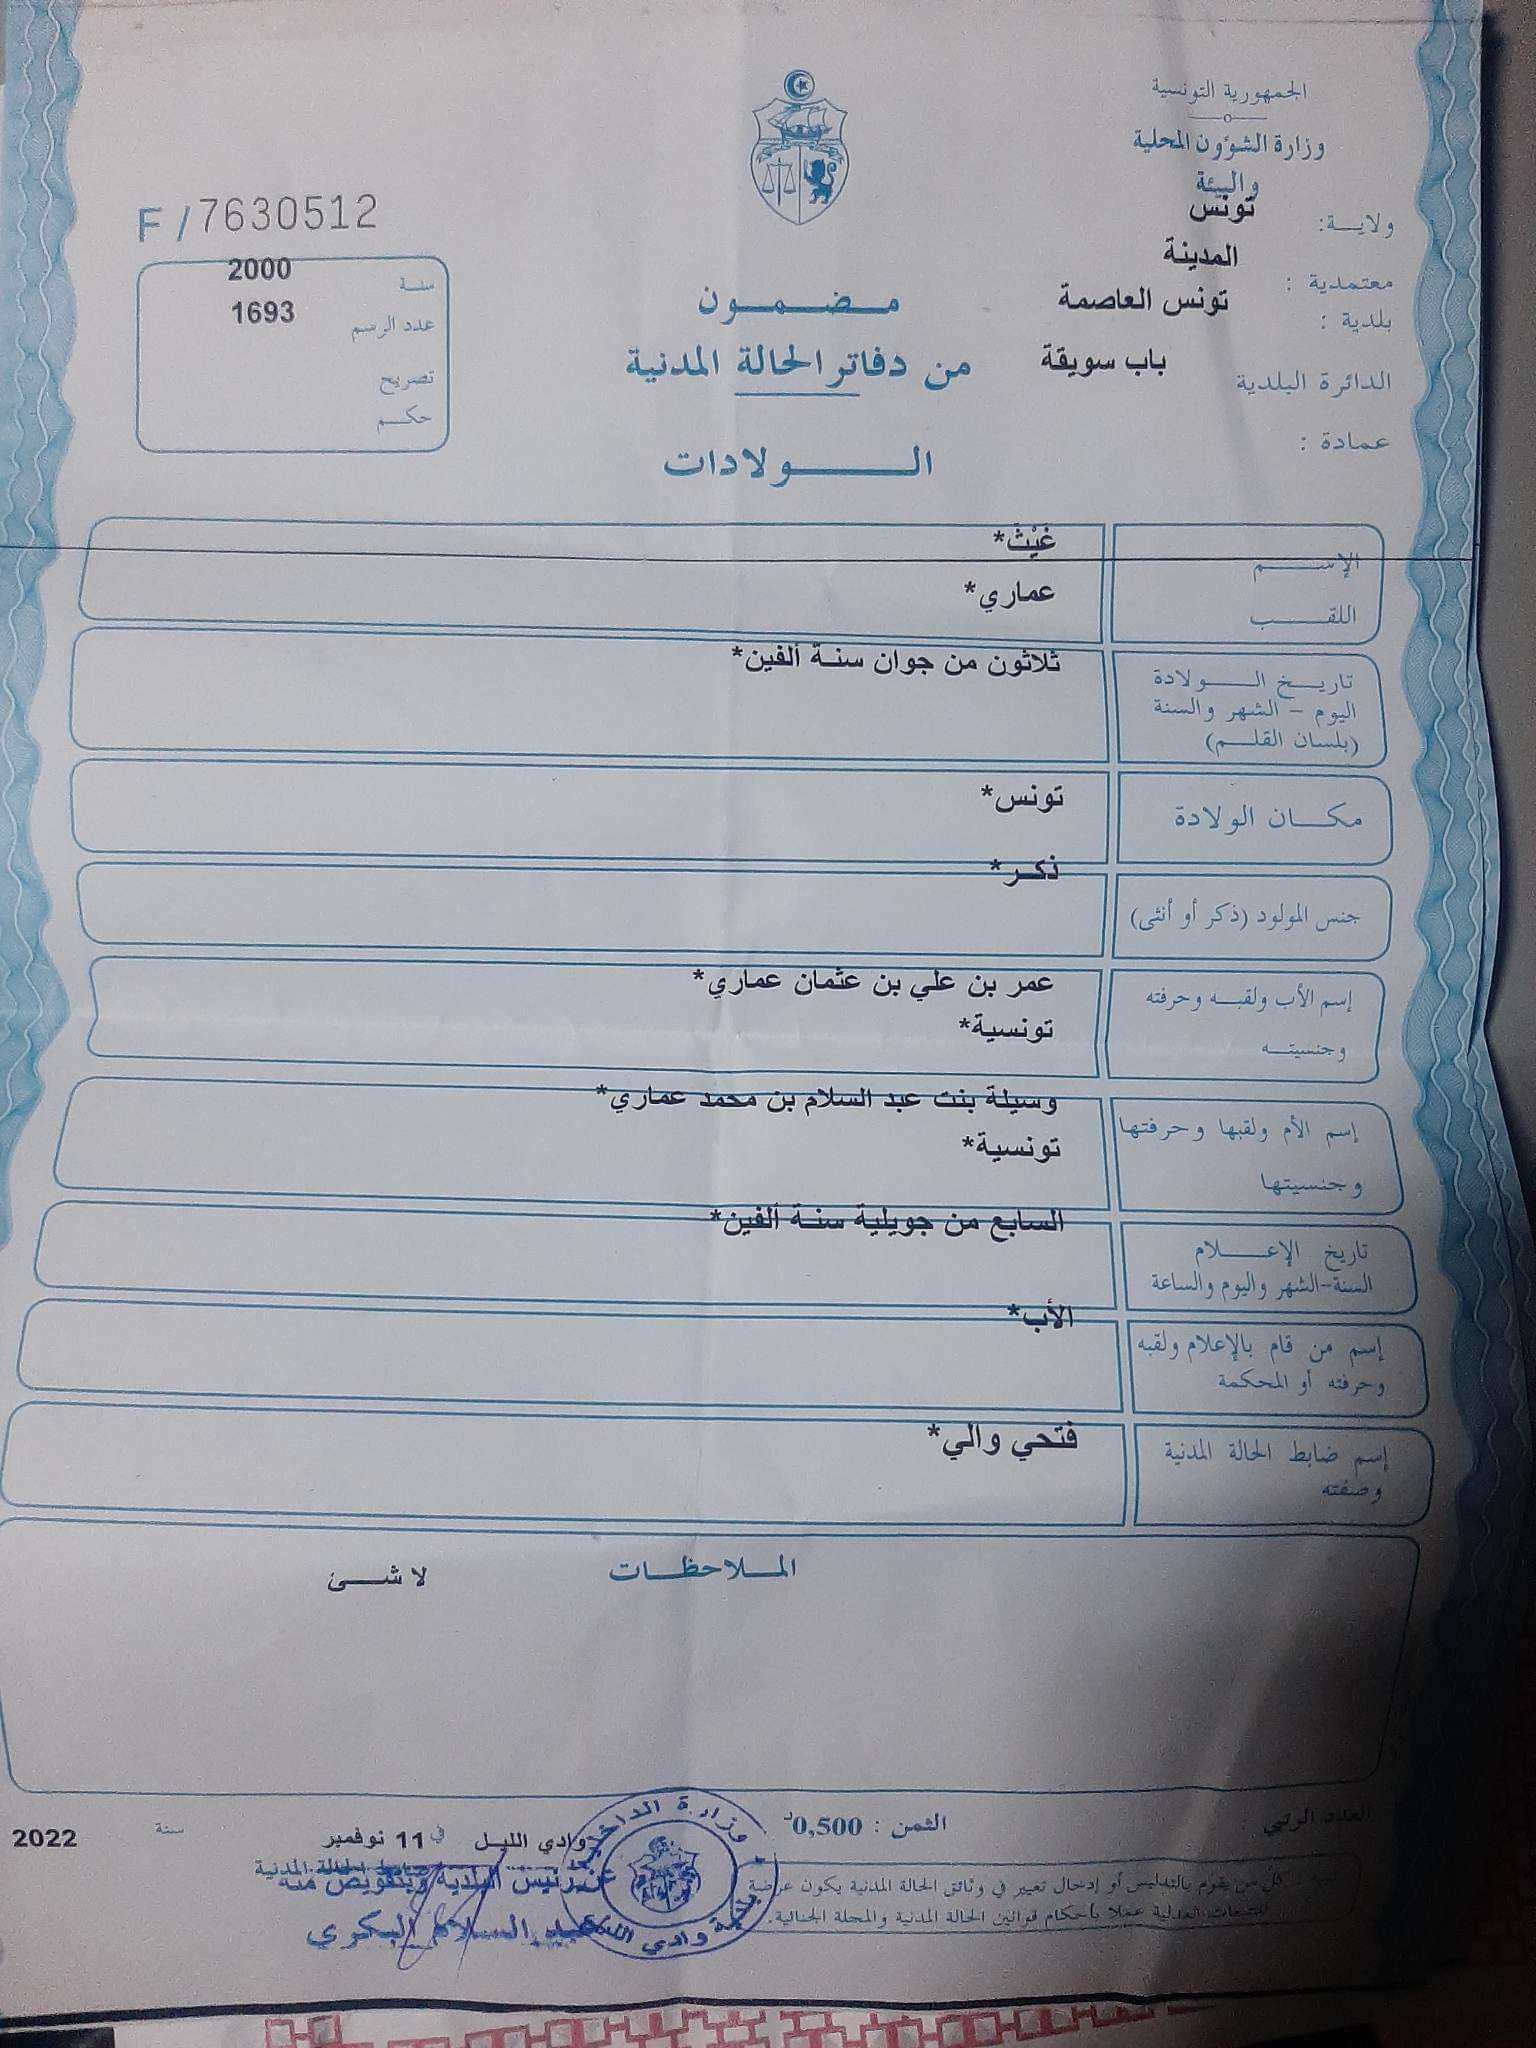 الجمهورية التونسية
وزارة الشؤون المحلية
والبيئة
ولاية: تونس
معتمدية : المدينة
بلدية : تونس العاصمة
الدائرة البلدية باب سويقة
عمادة :
F / 7630512
سنة 2000
عدد الرسم 1693
تصريح
حكم
مضمون
من دفاتر الحالة المدنية
الولادات
الإسم غَيْثْ*
اللقب عماري*
تاريخ الولادة ثلاثون من جوان سنة ألفين*
اليوم - الشهر والسنة
(بلسان القلم)
مكان الولادة تونس*
جنس المولود (ذكر أو أنثى) ذكر*
إسم الأب ولقبه وحرفته عمر بن علي بن عثمان عماري*
وجنسيته تونسية*
إسم الأم ولقبها وحرفتها وسيلة بنت عبد السلام بن محمد عماري*
وجنسيتها تونسية*
تاريخ الإعلام السابع من جويلية سنة ألفين*
السنة-الشهر واليوم والساعة
إسم من قام بالإعلام ولقبه الأب*
وحرفته أو المحكمة
إسم ضابط الحالة المدنية فتحي والي*
وصفته
الملاحظات لا شئ
العدد الرتبي :
الثمن : 0,500د
وادي الليل في 11 نوفمبر سنة 2022
ضابط الحالة المدنية
عن رئيس البلدية وبتفويض منه
عبد السلام البكري
وزارة الداخلية
بلدية وادي الليل
كل من يقوم بالتدليس أو إدخال تغيير في وثائق الحالة المدنية يكون عرضة
للتبعات العدلية عملا بأحكام قوانين الحالة المدنية والمجلة الجنائية.